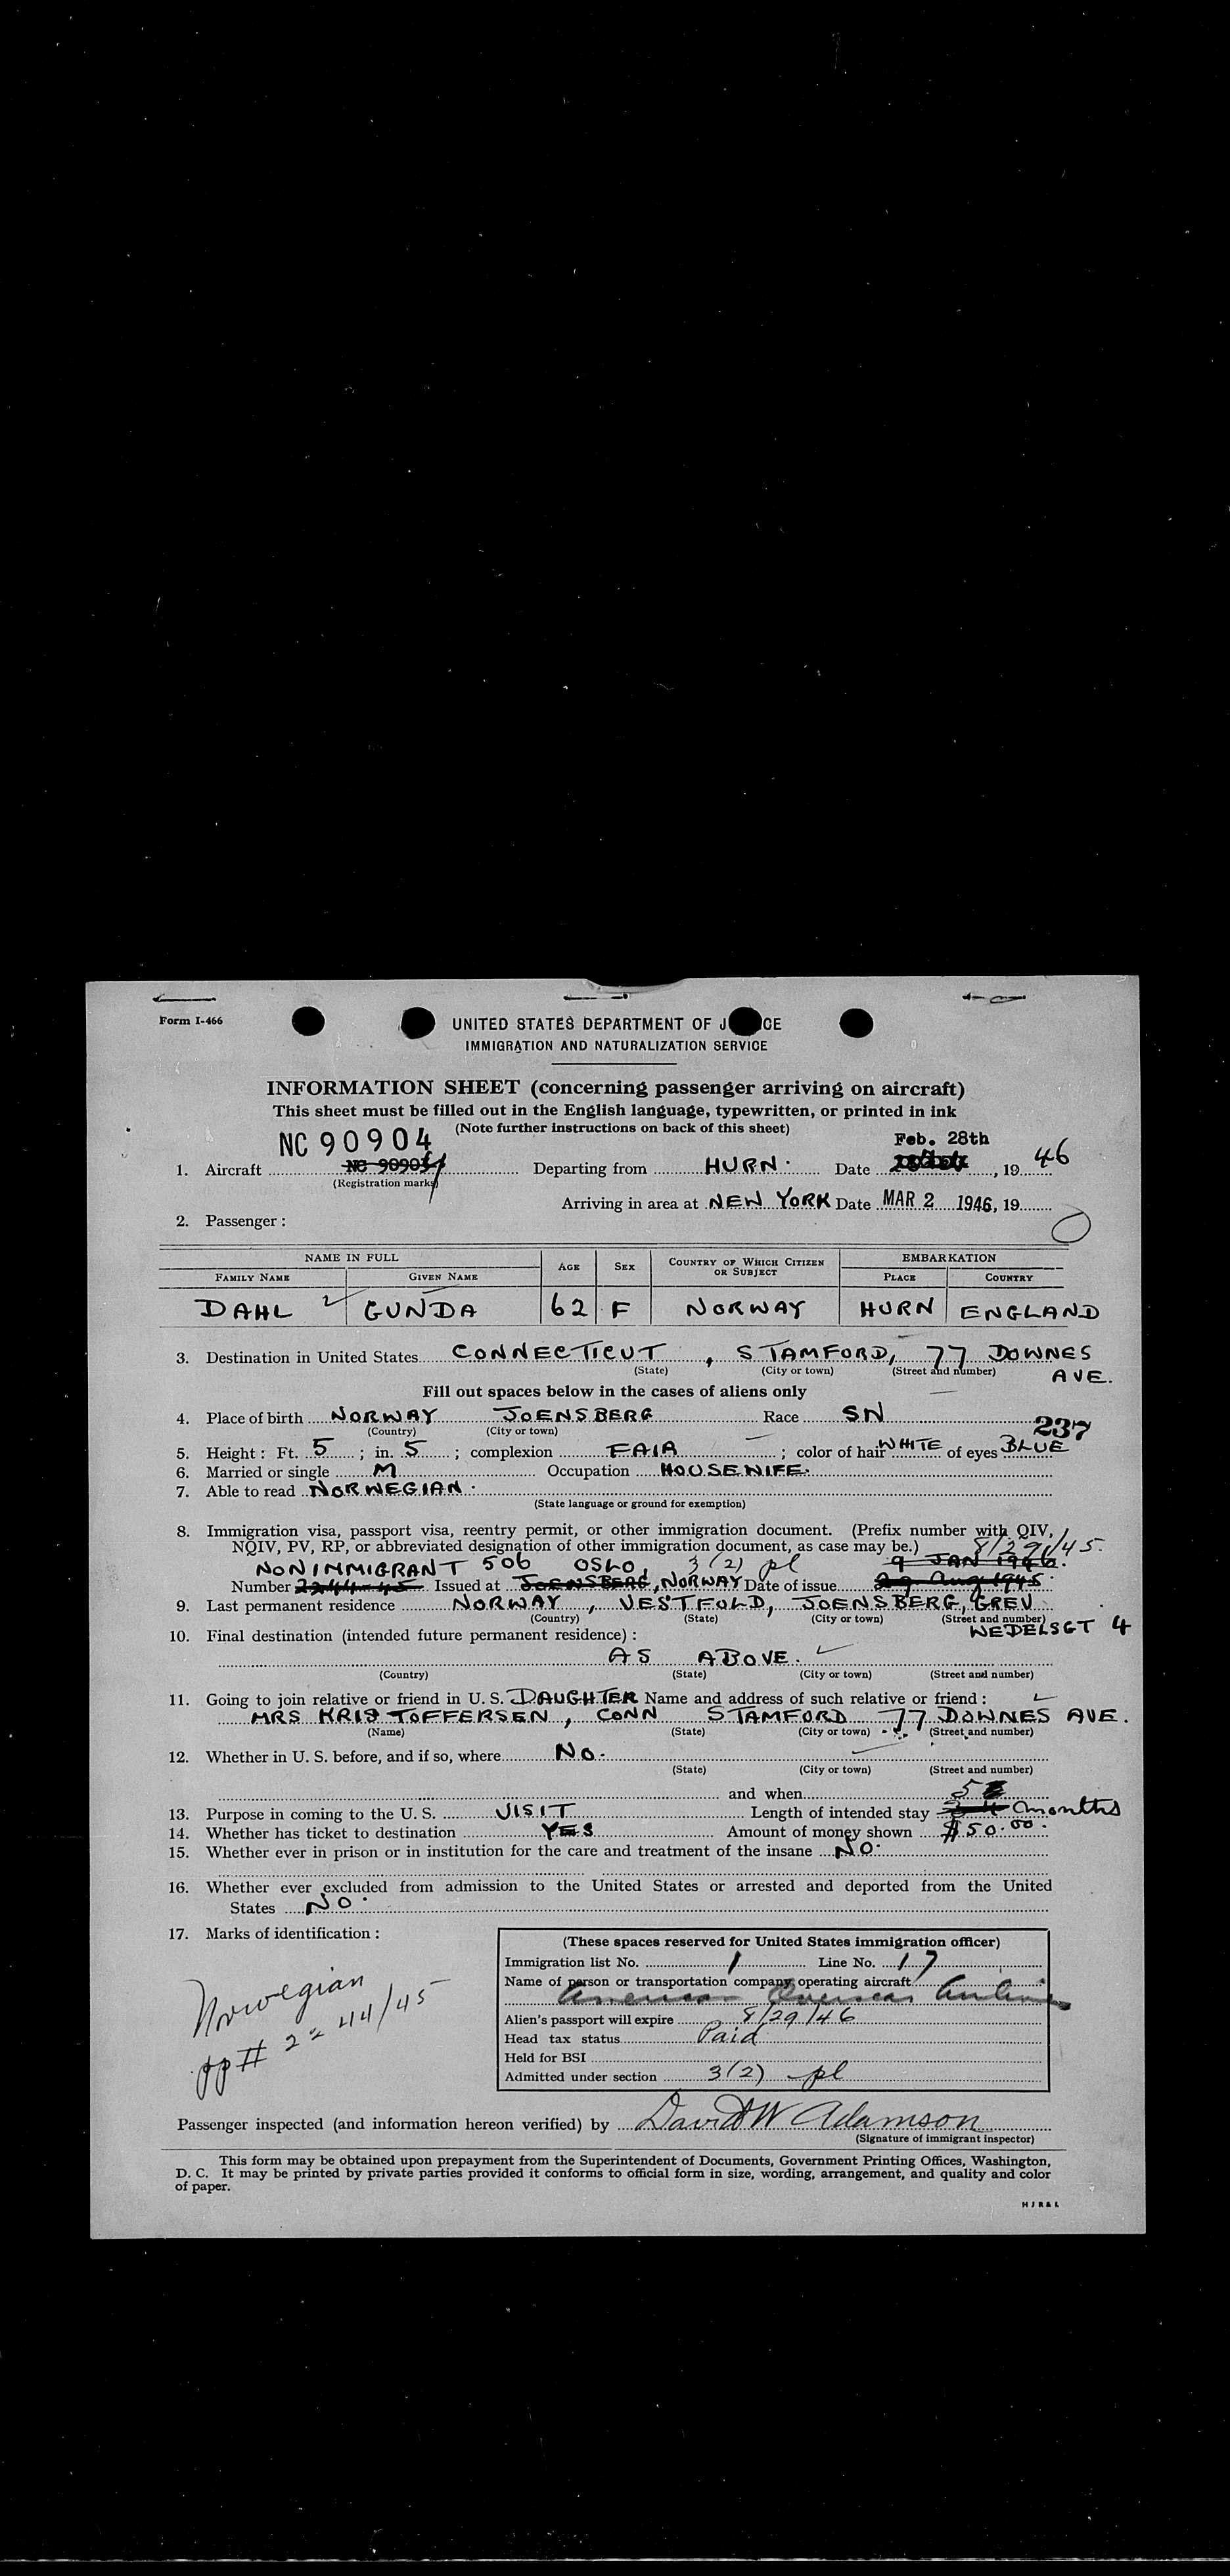 Form I-466
UNITED STATES DEPARTMENT OF J CE
IMMIGRATION AND NATURALIZATION SERVICE
INFORMATION SHEET (concerning passenger arriving on aircraft)
This sheet must be filled out in the English language, typewritten, or printed in ink
(Note further instructions on back of this sheet)
NC 90904 Feb. 28th
1. Aircraft Departing from HURN. Date , 19 46
(Registration marks)
Arriving in area at NEW YORK Date MAR 2 1946, 19
2. Passenger:
NAME IN FULL AGE SEX COUNTRY OF WHICH CITIZEN OR SUBJECT EMBARKATION
FAMILY NAME GIVEN NAME PLACE COUNTRY
DAHL GUNDA 62 F NORWAY HURN ENGLAND
3. Destination in United States CONNECTICUT, STAMFORD, 77 DOWNES
(State) (City or town) (Street and number) AVE.
Fill out spaces below in the cases of aliens only
4. Place of birth NORWAY JOENSBERG Race SN
(Country) (City or town) 237
5. Height: Ft. 5; in. 5; complexion FAIR; color of hair WHITE of eyes BLUE
6. Married or single M Occupation HOUSEWIFE.
7. Able to read NORWEGIAN.
(State language or ground for exemption)
8. Immigration visa, passport visa, reentry permit, or other immigration document. (Prefix number with QIV,
NQIV, PV, RP, or abbreviated designation of other immigration document, as case may be.) 8/29/45.
NONIMMIGRANT 506 OSLO 3(2) pl 9 JAN 1946.
Number 2244-45 Issued at JOENSBERG, NORWAY Date of issue 29 Aug 1945
9. Last permanent residence NORWAY, VESTFOLD, JOENSBERG, GREV
(Country) (State) (City or town) (Street and number)
WEDELSGT 4
10. Final destination (intended future permanent residence):
AS ABOVE.
(Country) (State) (City or town) (Street and number)
11. Going to join relative or friend in U. S. DAUGHTER Name and address of such relative or friend:
MRS KRISTOFFERSEN, CONN STAMFORD 77 DOWNES AVE.
(Name) (State) (City or town) (Street and number)
12. Whether in U. S. before, and if so, where NO.
(State) (City or town) (Street and number)
and when
13. Purpose in coming to the U. S. VISIT Length of intended stay 5 months
14. Whether has ticket to destination YES Amount of money shown $50.00.
15. Whether ever in prison or in institution for the care and treatment of the insane NO.
16. Whether ever excluded from admission to the United States or arrested and deported from the United
States NO.
17. Marks of identification:
Norwegian
pp # 2244/45
(These spaces reserved for United States immigration officer)
Immigration list No. 1 Line No. 17
Name of person or transportation company operating aircraft
American Overseas Airlines
Alien's passport will expire 8/29/46
Head tax status Paid
Held for BSI
Admitted under section 3(2) pl
Passenger inspected (and information hereon verified) by David W Adamson
(Signature of immigrant inspector)
This form may be obtained upon prepayment from the Superintendent of Documents, Government Printing Offices, Washington,
D. C. It may be printed by private parties provided it conforms to official form in size, wording, arrangement, and quality and color
of paper.
H J R & L